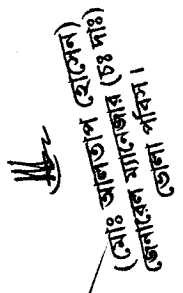 (মোঃ আলতাপ হোসেন)
জেনারেল ম্যানেজার (চঃ দাঃ)
ভোলা পবিস।